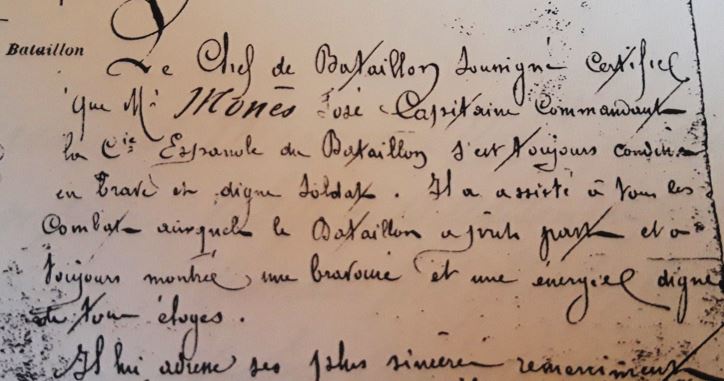 Bataillon
Le Chef de Bataillon soussigné certifie
que Mr Monés José Capitaine Commandant
la Cie Espanole du Bataillon s'est toujours conduit
en brave et digne soldat. Il a assisté à tous les
Combats auxquels le Bataillon a pris part et a
toujours montré une bravoure et une énergie digne
de tous éloges.
Il lui adresse ses plus sincères remerciments